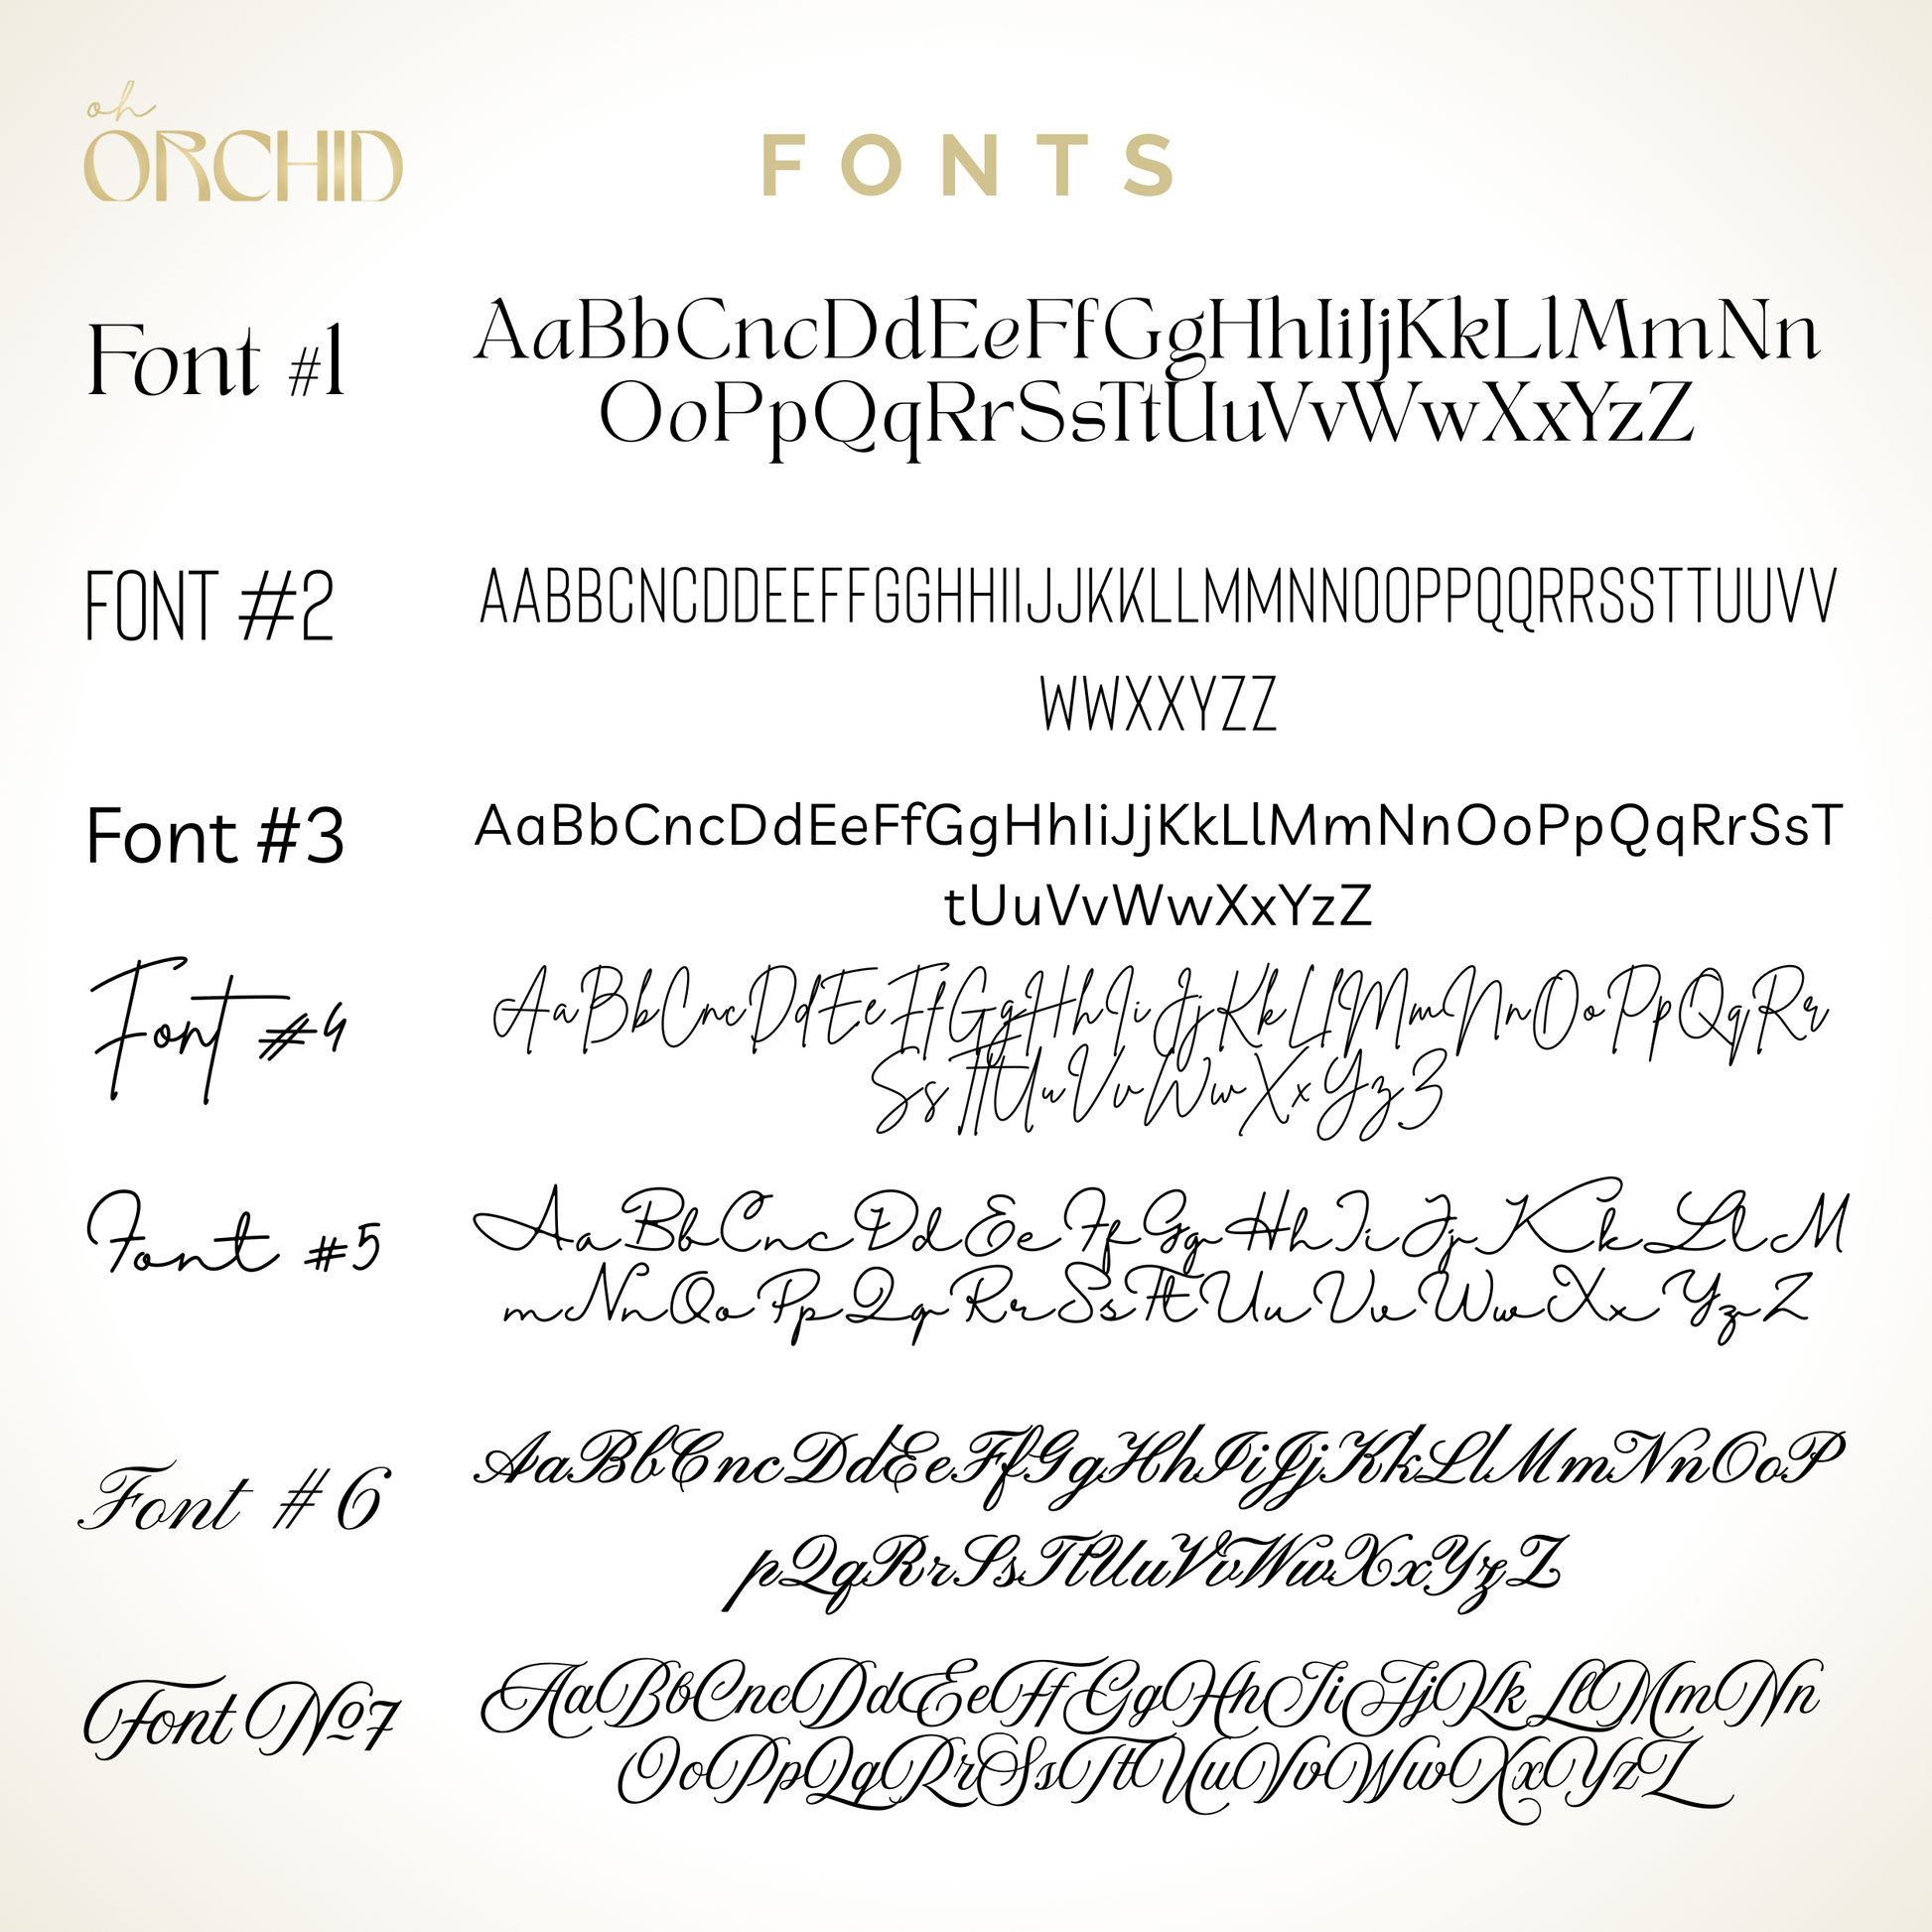 oh
ORCHID
FONTS
Font #1
AaBbCncDdEeFfGgHhIiJjKkLlMmNn
OoPpQqRrSsTtUuVvWwXxYzZ
FONT #2
AABBCNCDDEEFFGGHHIIJJKKLLMMNNOOPPQQRRSSTTUUVV
WWXXYZZ
Font #3
AaBbCncDdEeFfGgHhIiJjKkLlMmNnOoPpQqRrSsT
tUuVvWwXxYzZ
Font #4
AaBbCncDdEeFfGgHhIiJjKkLlMmNnOoPpQqRr
SsTtUuVvWwXxYzZ
Font #5
AaBbCncDdEeFfGgHhIiJjKkLlM
mNnOoPpQqRrSsTtUuVvWwXxYzZ
Font #6
AaBbCncDdEeFfGgHhIiJjKkLlMmNnOoP
pQqRrSsTtUuVvWwXxYzZ
Font №7
AaBbCncDdEeFfGgHhIiJjKkLlMmNn
OoPpQqRrSsTtUuVvWwXxYzZ